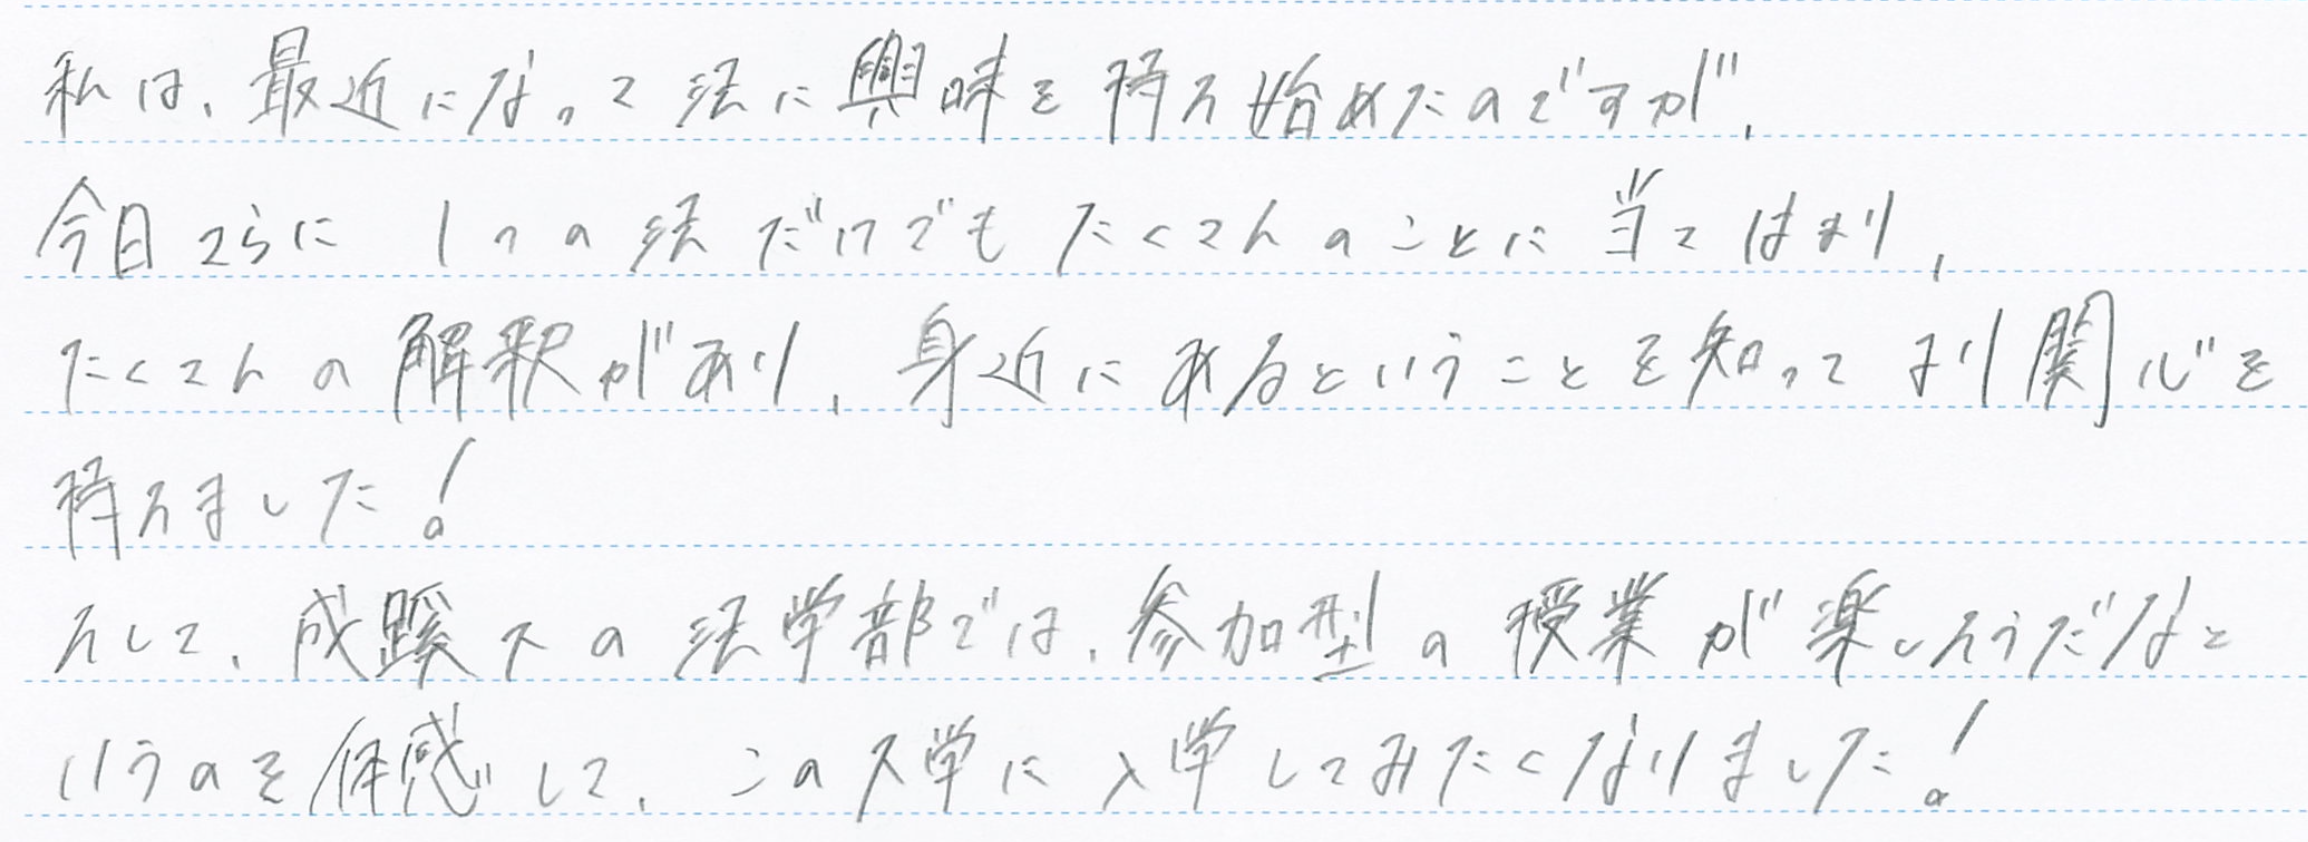 私は、最近になって法に興味を持ち始めたのですが、
今日さらに 1つの法だけでもたくさんのことに当てはまり、
たくさんの解釈があり、身近にあるということを知ってより関心を
持ちました!
そして、成蹊大の法学部では、参加型の授業が楽しそうだなと
いうのを体感して、この大学に入学してみたくなりました!